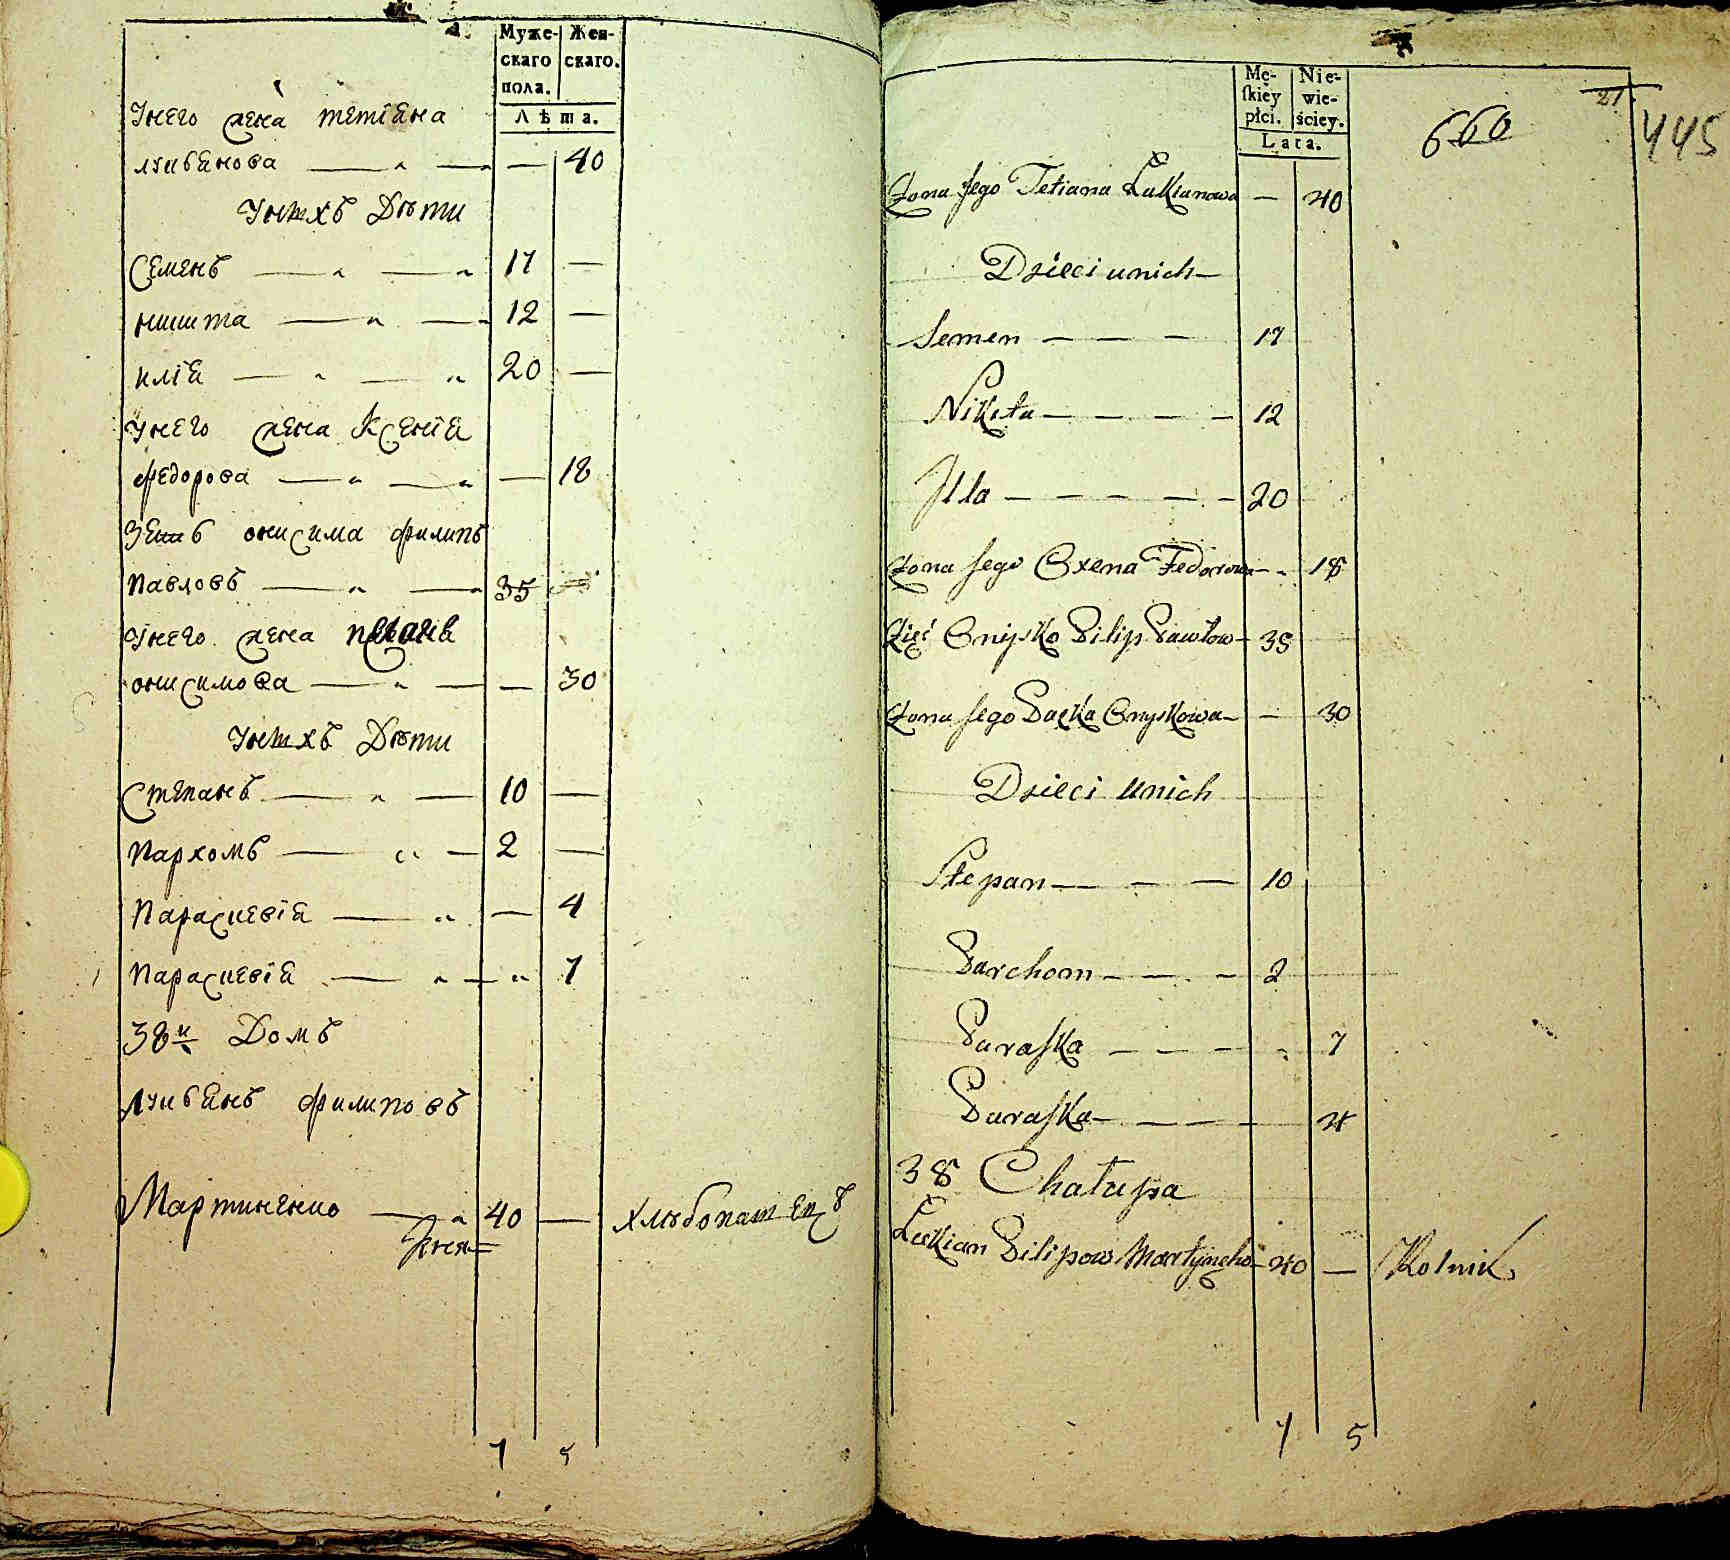 Муже-
скаго
пола.
Жен-
скаго.
Лѣта.
Унего жена тетіѧна
лукѧнова — „ — — 40
Унихъ Дѣти
Семенъ — „ — „ 17 —
никита — „ — „ 12 —
иліѧ — „ — „ 20 —
Унего жена Ксеніѧ
федорова — „ — „ — 18
Зеть онисима филипъ
павловъ — „ — „ 35
Унего жена
онисимова — „ — — 30
Унихъ Дѣти
Степанъ — „ — 10 —
пархомъ — „ — 2 —
параскевіѧ — „ — 4
параскевіѧ — „ — „ 7
38й Домъ
лукѧнъ филиповъ
Мартиненко — „ 40 — хлѣбопашецъ
7 5
Mę-
skiey
płci.
Nie-
wie-
ściey.
Lata.
21
660
445
Żona Jego Tetiana Łukianowa — 40
Dzieci unich —
Semen — — — 17
Nikita — — — — 12
Illa — — — — — 20
Żona Jego Oxena Fedorowa — - 18
Zięć Onyśka Pilip Pawłow — 35
Żona Jego Onyskowa — — 30
Dzieci unich
Stepan — — — 10
Parchom — — . — 2
Paraska — — — - 7
Paraska — . — — — 4
38 Chałupa
Łukian Pilipow Martynęko — 40 — Rolnik
7 5